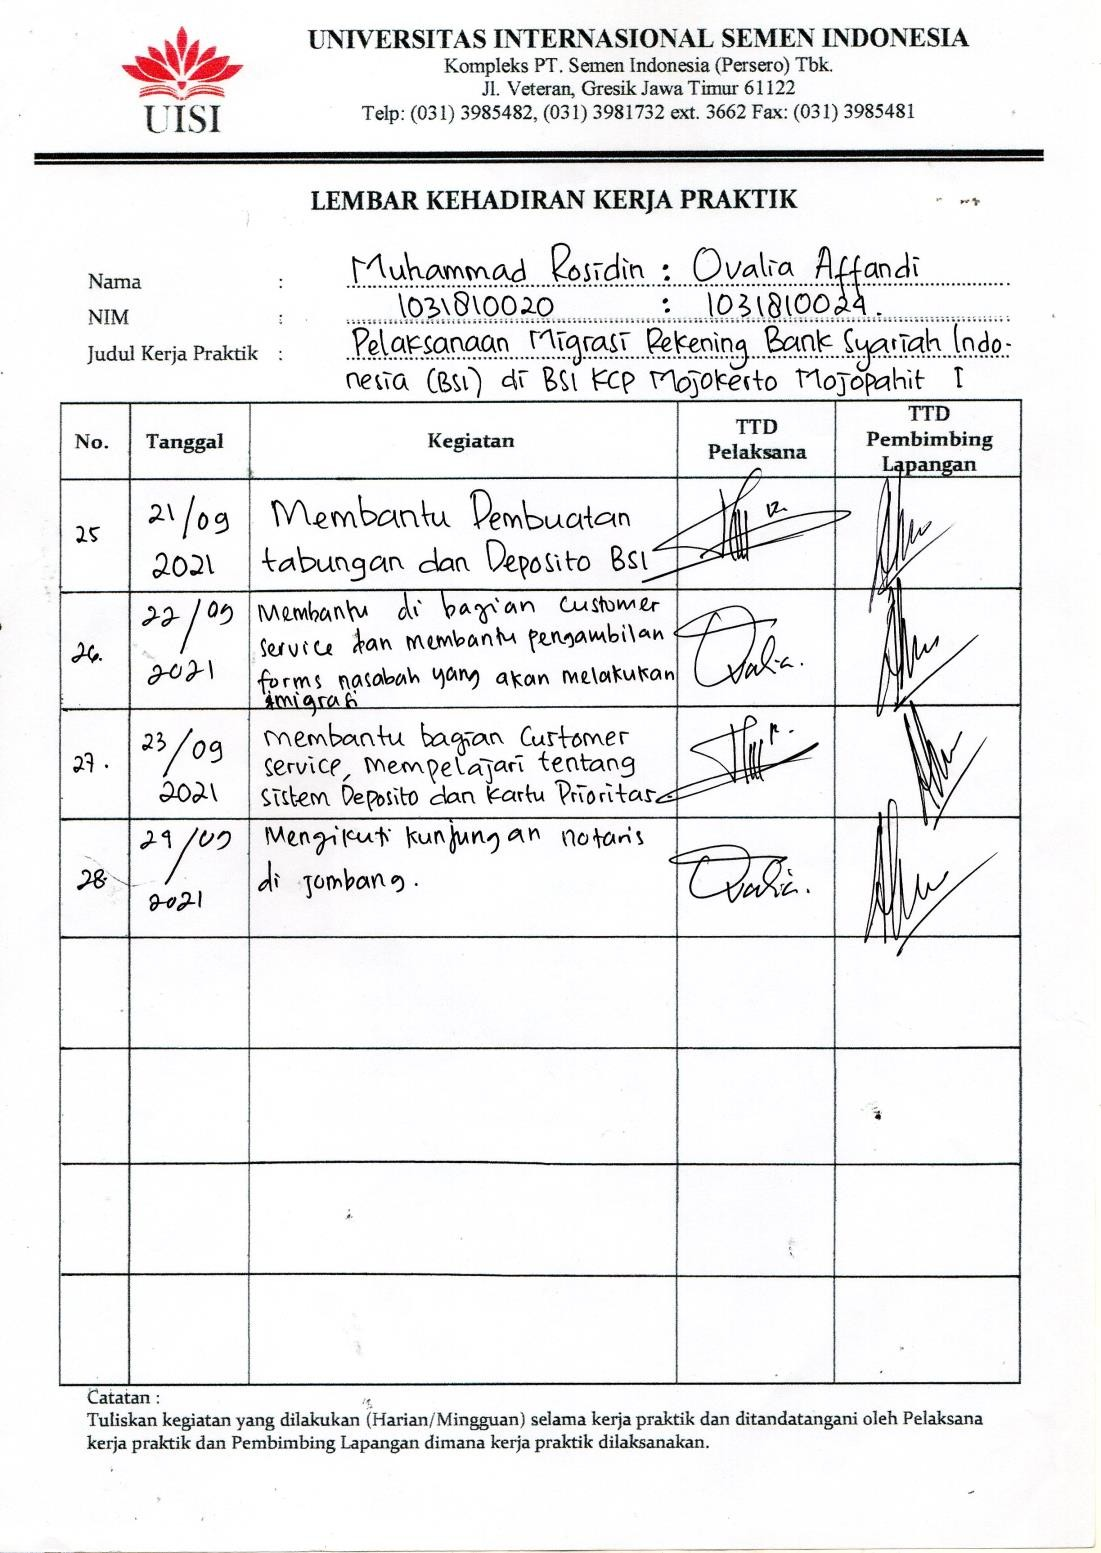 UISI
UNIVERSITAS INTERNASIONAL SEMEN INDONESIA
Kompleks PT. Semen Indonesia (Persero) Tbk.
Jl. Veteran, Gresik Jawa Timur 61122
Telp: (031) 3985482, (031) 3981732 ext. 3662 Fax: (031) 3985481
LEMBAR KEHADIRAN KERJA PRAKTIK
Nama : Muhammad Rosidin : Ovalia Affandi
NIM : 1031810020 : 1031810024.
Judul Kerja Praktik : Pelaksanaan Migrasi Rekening Bank Syariah Indo-
nesia (BSI) di BSI KCP Mojokerto Mojopahit I
No. Tanggal Kegiatan TTD Pelaksana TTD Pembimbing Lapangan
25 21/09 2021 Membantu Pembuatan
tabungan dan Deposito BSI
26. 22/09 2021 Membantu di bagian customer
service dan membantu pengambilan
forms nasabah yang akan melakukan
imigrasi
Ovalia.
27. 23/09 2021 Membantu bagian Customer
service, mempelajari tentang
sistem Deposito dan Kartu Prioritas
28. 29/09 2021 Mengikuti kunjungan notaris
di jombang.
Ovalia.
Catatan :
Tuliskan kegiatan yang dilakukan (Harian/Mingguan) selama kerja praktik dan ditandatangani oleh Pelaksana
kerja praktik dan Pembimbing Lapangan dimana kerja praktik dilaksanakan.